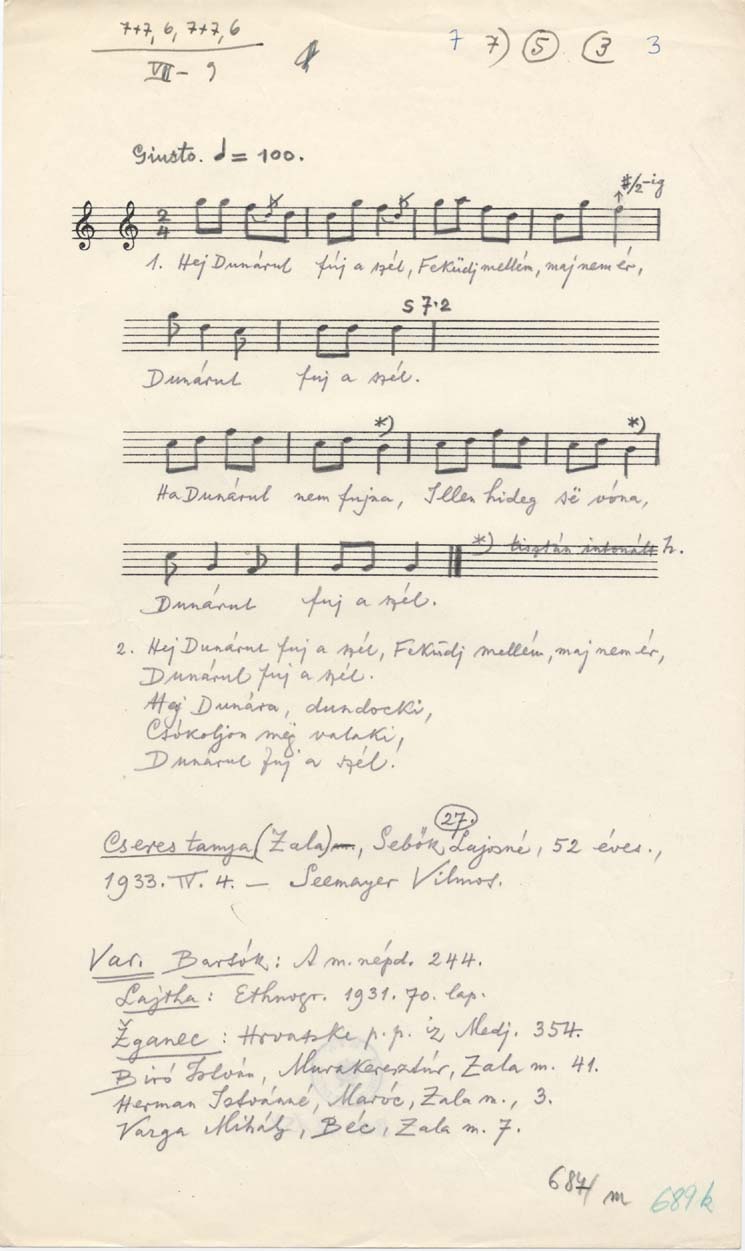 7+7, 6, 7+7, 6
VII - 9
7 7) 5 3 3
Giusto. = 100.
#/2-ig
1. Hej Dunárul fúj a szél, Feküdj mellém, maj nem ér,
S 7.2
Dunárul fuj a szél.
*) *)
Ha Dunárul nem fujna, Illen hideg së vóna,
*) tisztán intonált h.
Dunárul fuj a szél.
2. Hej Dunárul fuj a szél, Feküdj mellém, maj nem ér,
Dunárul fuj a szél.
Hej Dunára, dundocki,
Csókoljon mëg valaki,
Dunárul fuj a szél.
27.
Cseres tanya (Zala), Sebők Lajosné, 52 éves.,
1933. IV. 4. – Seemayer Vilmos.
Var. Bartók: A m. népd. 244.
Lajtha: Ethnogr. 1931. 70. lap.
Žganec: Hrvatske p. p. iz Medj. 354.
Biró István, Murakeresztúr, Zala m. 41.
Herman Istvánné, Maróc, Zala m., 3.
Varga Mihály, Béc, Zala m. 7.
684/m 689k